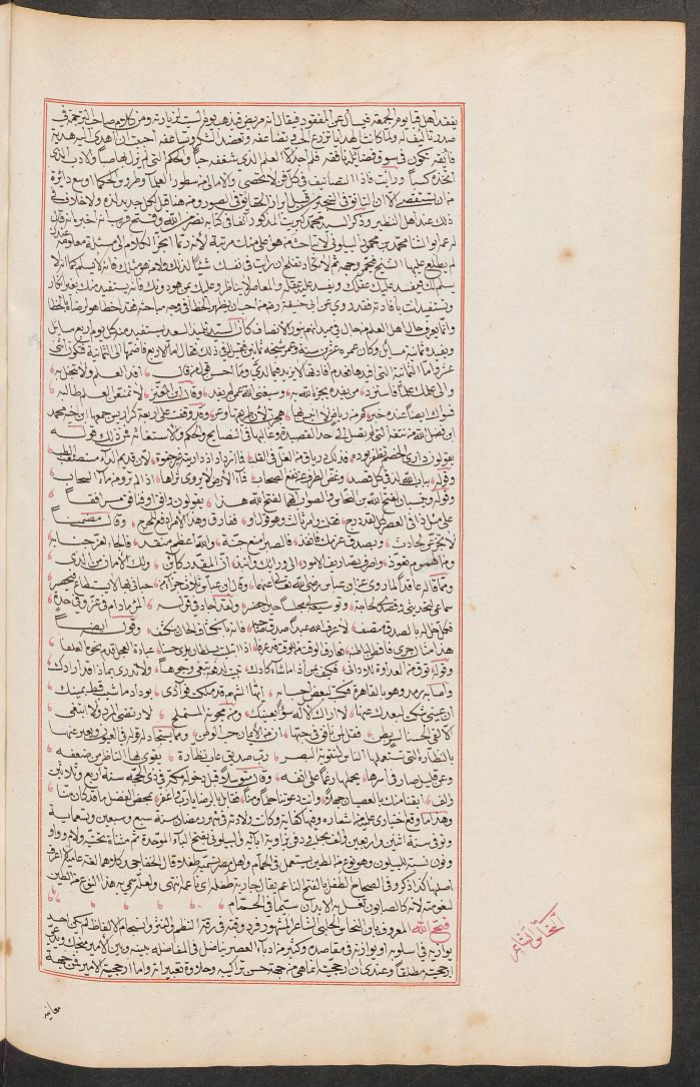 يفقد اهل قبا يوم الجمعة فيسأل عن المفقود فيقال انه مريض فيذهب يوم السبت لزيارته ومن كلام صاحب الترجمة في
صدر تأليف له ولما كانت الهدايا تزرع الحب وتضاعفه وتعضد الشكر وتساعفه احببت ان اهدي اليه هدية
فائقة تكون في سوق فضايله نافقة فلم اجد الا العلم الذي شغفه حبا والحكم التي لم يزل بها صبا والادب الذي
اتخذه كسبا ورأيت فاذا التصانيف في كل فن لا تحصى والامالي من سطور العلماء وطروس الحكماء اوسع دائرة
من ان تستقصى الا ان التانق في التحبير من قبيل ابراز الحقايق في الصور ومن هنا قيل لكل جديد لذة ولا خلاف في
ذلك عند اهل النظر وذكر السيد محمد كبريت المذكور آنفا في كتابه نصر من الله وفتح قريب انه اخبر انه قال
له عمه ابو الثنا محمود بن محمد البيلوني لا تباحث من هو اعلى منك مرتبة لأنه ربما انجر الكلام الى مسئلة معلومة عندك
لم يطلع عليها
يسلم لك فيفسد عليك عقلك
وتستفيد ايضا بافادته فقد روي عن ابي حنيفة
وانما يعرف حال اهل العلم
ويفيده ثمانية مسايل وكان عمره عشرين سنة وعمر شيخه ثمانين فقيل له في ذلك فقال اما الاربع فاضمها الى الثمانية فتكون اثنى
عشر واما الثمانية التي افيدها فعدم افادتها لا يزيد فيما لدي وما احسن قول من قال افد العلم ولا تبخل به
والى علمك علما فاستزد من يفده يجزه الله به وسيغني الله عمن لم يفد وقال ابن المعتز لا تمنعن العلم طالبه
فسواك ايضا عنده خبر كم من رياض لا انيس بها هجرت لان طريقها وعر وقد وقفت على اربعة كراريس جمعها ابن اخيه محمد
ابن فضل الله من نتفه التي لم تصل الى حد القصيدة وغالبها في النصايح والحكم والاستغاثة فمن ذلك قوله
يقولون دارى الخصم تظفر بوده فذلك درياق من الغل في القلب فما ازداد اذ داريته غير جفوة لان قديم الداء مستصعب الطب
وقوله بباب الله لذ في كل قصد وغض الطرف عن نفع الصحاب فماء الارض لا يروي ثراها اذا لم ترو من ماء السحاب
وقوله وحبسان لفتح الله بن النحاس والصواب انهما لفتح الله هذا يقولون وافق او فنافق مرافقا
على مثل ذا في العصر كل لقد درج فقلت وامر ثالث وهو قول او ففارق وهذا الامر ادفع للحرج وقال مضمنا
لا تجزعن لحادث وبصدق عزمك فانفذ فالصبر امنع جنة والله اعظم منقذ فالجأ لعز جنابه
ومن الهموم تعوذ واصرف تصاريف الامور الى ورائك وانبذ ان المقدر كائن ولك الامان من الذي
ومما قاله عاقدا لما روي عن ابن عباس رضي الله تعالى عنهما وقال ابن عباس ثلاث جزاؤهم حيا في بها لا يستطاع فتحصر
سماعي تحديثي وقصدك لحاجة وتوسيعة مجلسا حين احضر ولقد اجاد في قوله المرء ما دام في عز وفي جدة
فكل خل له بالصدق متصف لا عرف الله عبدا صدق صحبته فانه بانكشاف الحال ينكشف وقوله ايضا
هذا مثل جرى فافطن لباطنه تعارف الوقت من توفيق من عرفا اذا ابتليت بسلطان يرى حسنا عبادة العجل قدم نحوه العلفا
وقوله توق من العداوة للادانى فكيف بمن اذا ما شاء كادك تبيت لدفعه تبغي وجوها ولا تدرى بماذا قد ارادك
واصابه رمد وهو بالقاهرة فكتب لبعض احبابه ايها الشهم قد ملكت فؤادي بوداد ما شيب قط بمينك
ان عيني تشكي لبعدك عنها لا اراك الاله سوأ بعينك ومن مجونه المستملح لا رتضي المرد ولا ابتغي
الا لقى الحسنا البيض فقل لمن نافق في حبها ان من الايمان حب الوطن ومما يستجاد له قوله في العيون وتعبير عنها
بالنظارة التي تستعملها الناس لتقوية البصر رب صديق عاب نظارة يقوى بها الناظر من ضعفه
وعن قليل صار في اسرها يحملها رغما على انفه وقال متوسلا قبل دخوله مكة في ذي الحجة سنة اربع وثلاثين
والف اتيناك من كل العصيان جهلا وانت دعوتنا حلما ومنا فقابل بالرضا يا رب واغفر بمحض الفضل ما قد كان منا
وهذا ما وقع اختياري عليه من اشعاره وفيها كفاية وكانت ولادته في شهر رمضان سنة سبع وسبعين وتسعماية
وتوفي سنة اثنين واربعين والف بحلب ودفن بزاوية آبائه والبيلوني بفتح الباء الموحدة ثم مثناة تحتية ولام وواو
ونون نسبة للبيلون وهو نوع من الطين يستعمل في الحمام واهل مصر تسميه طفلا وقال الخفاجي كلاهما لغة عامية لا اعرف
اصلها كذا ذكر وفي الصحاح الطفل بالفتح الناعم يقال جارية طفلة اي ناعمة انتهى ولعله سمي به هذا النوع من الطين
لنعومته لانه كالصابون تغسل به الابدان سيما في الحمام
فتح الله المعروف بابن النحاس الحلبي الشاعر المشهور فرد وقته في رقة النظم والنثر وانسجام الالفاظ لم يكن احد
يوازيه في اسلوبه او يوازنه في مقاصده وكثير من ادباء العصر يناضل في المفاضلة بينه وبين الامير منجك ويدعي
ارجحيته مطلقا وعندي ان ارجحيته انما هي من جهة حسن تراكيبه وحلاوة تعبيراته واما ارجحية الامير فمن جهة
النحاس الشاعر
معانيه